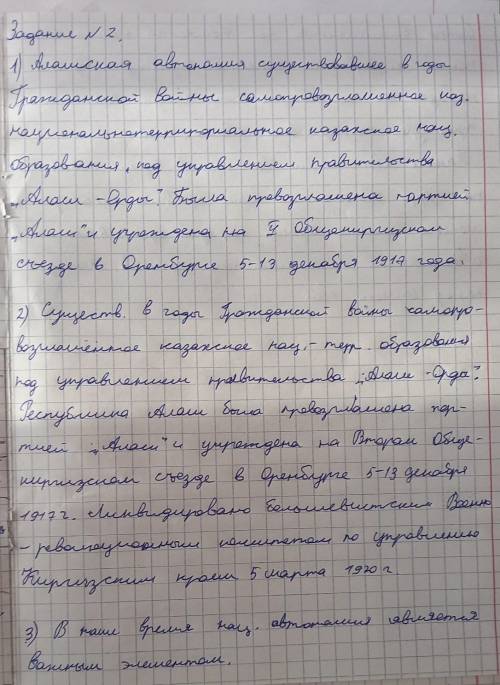 Задание №2.
1) Алашская автономия существовавшее в годы
Гражданской войны самопровозглашенное каз.
национальнотерриториальное казахское нац.
образования, под управлением правительства
„Алаш-Орды". Была провозглашена партией
„Алаш" и учреждена на II Общекиргизском
съезде в Оренбурге 5-13 декабря 1917 года.
2) Существ. в годы Гражданской войны самопро-
возглашённое казахское нац.-терр. образования
под управлением правительства „Алаш-Орда".
Республика Алаш была провозглашена пар-
тией „Алаш" и учреждена на Втором Обще-
киргизском съезде в Оренбурге 5-13 декабря
1917г. Ликвидировано большевистским Военно
-революционным комитетом по управлению
Киргизским краем 5 марта 1920г.
3) В наше время нац. автономия является
важным элементом.